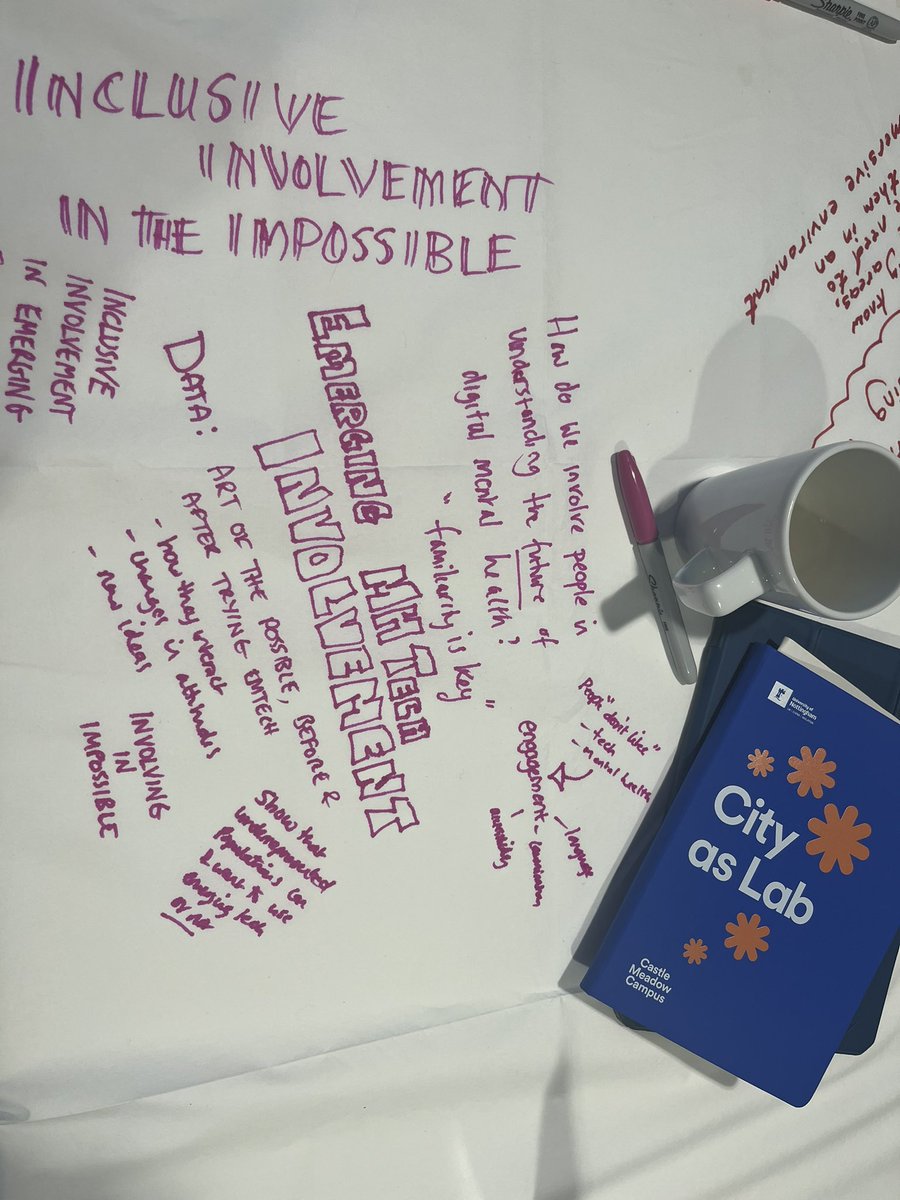 INCLUSIVE
INVOLVEMENT
IN THE IMPOSSIBLE
INCLUSIVE
INVOLVEMENT
IN EMERGING
How do we involve people in
understanding the future of
digital mental health?
"familiarity is key"
EMERGING
MH TECH
INVOLVEMENT
DATA: ART OF THE POSSIBLE, BEFORE &
AFTER TRYING EMTECH
- how they interact
- changes in attitudes
- new ideas
INVOLVING
IN
IMPOSSIBLE
Show that
underrepresented
populations can
& want to use
emerging tech
or not
people "don't like"
- tech
- mental health
engagement
- language
accessibility
know
areas,
need to
them in an
environment
Sharpie
Sharpie
FINE POINT
University of
Nottingham
City
as Lab
Castle
Meadow
Campus